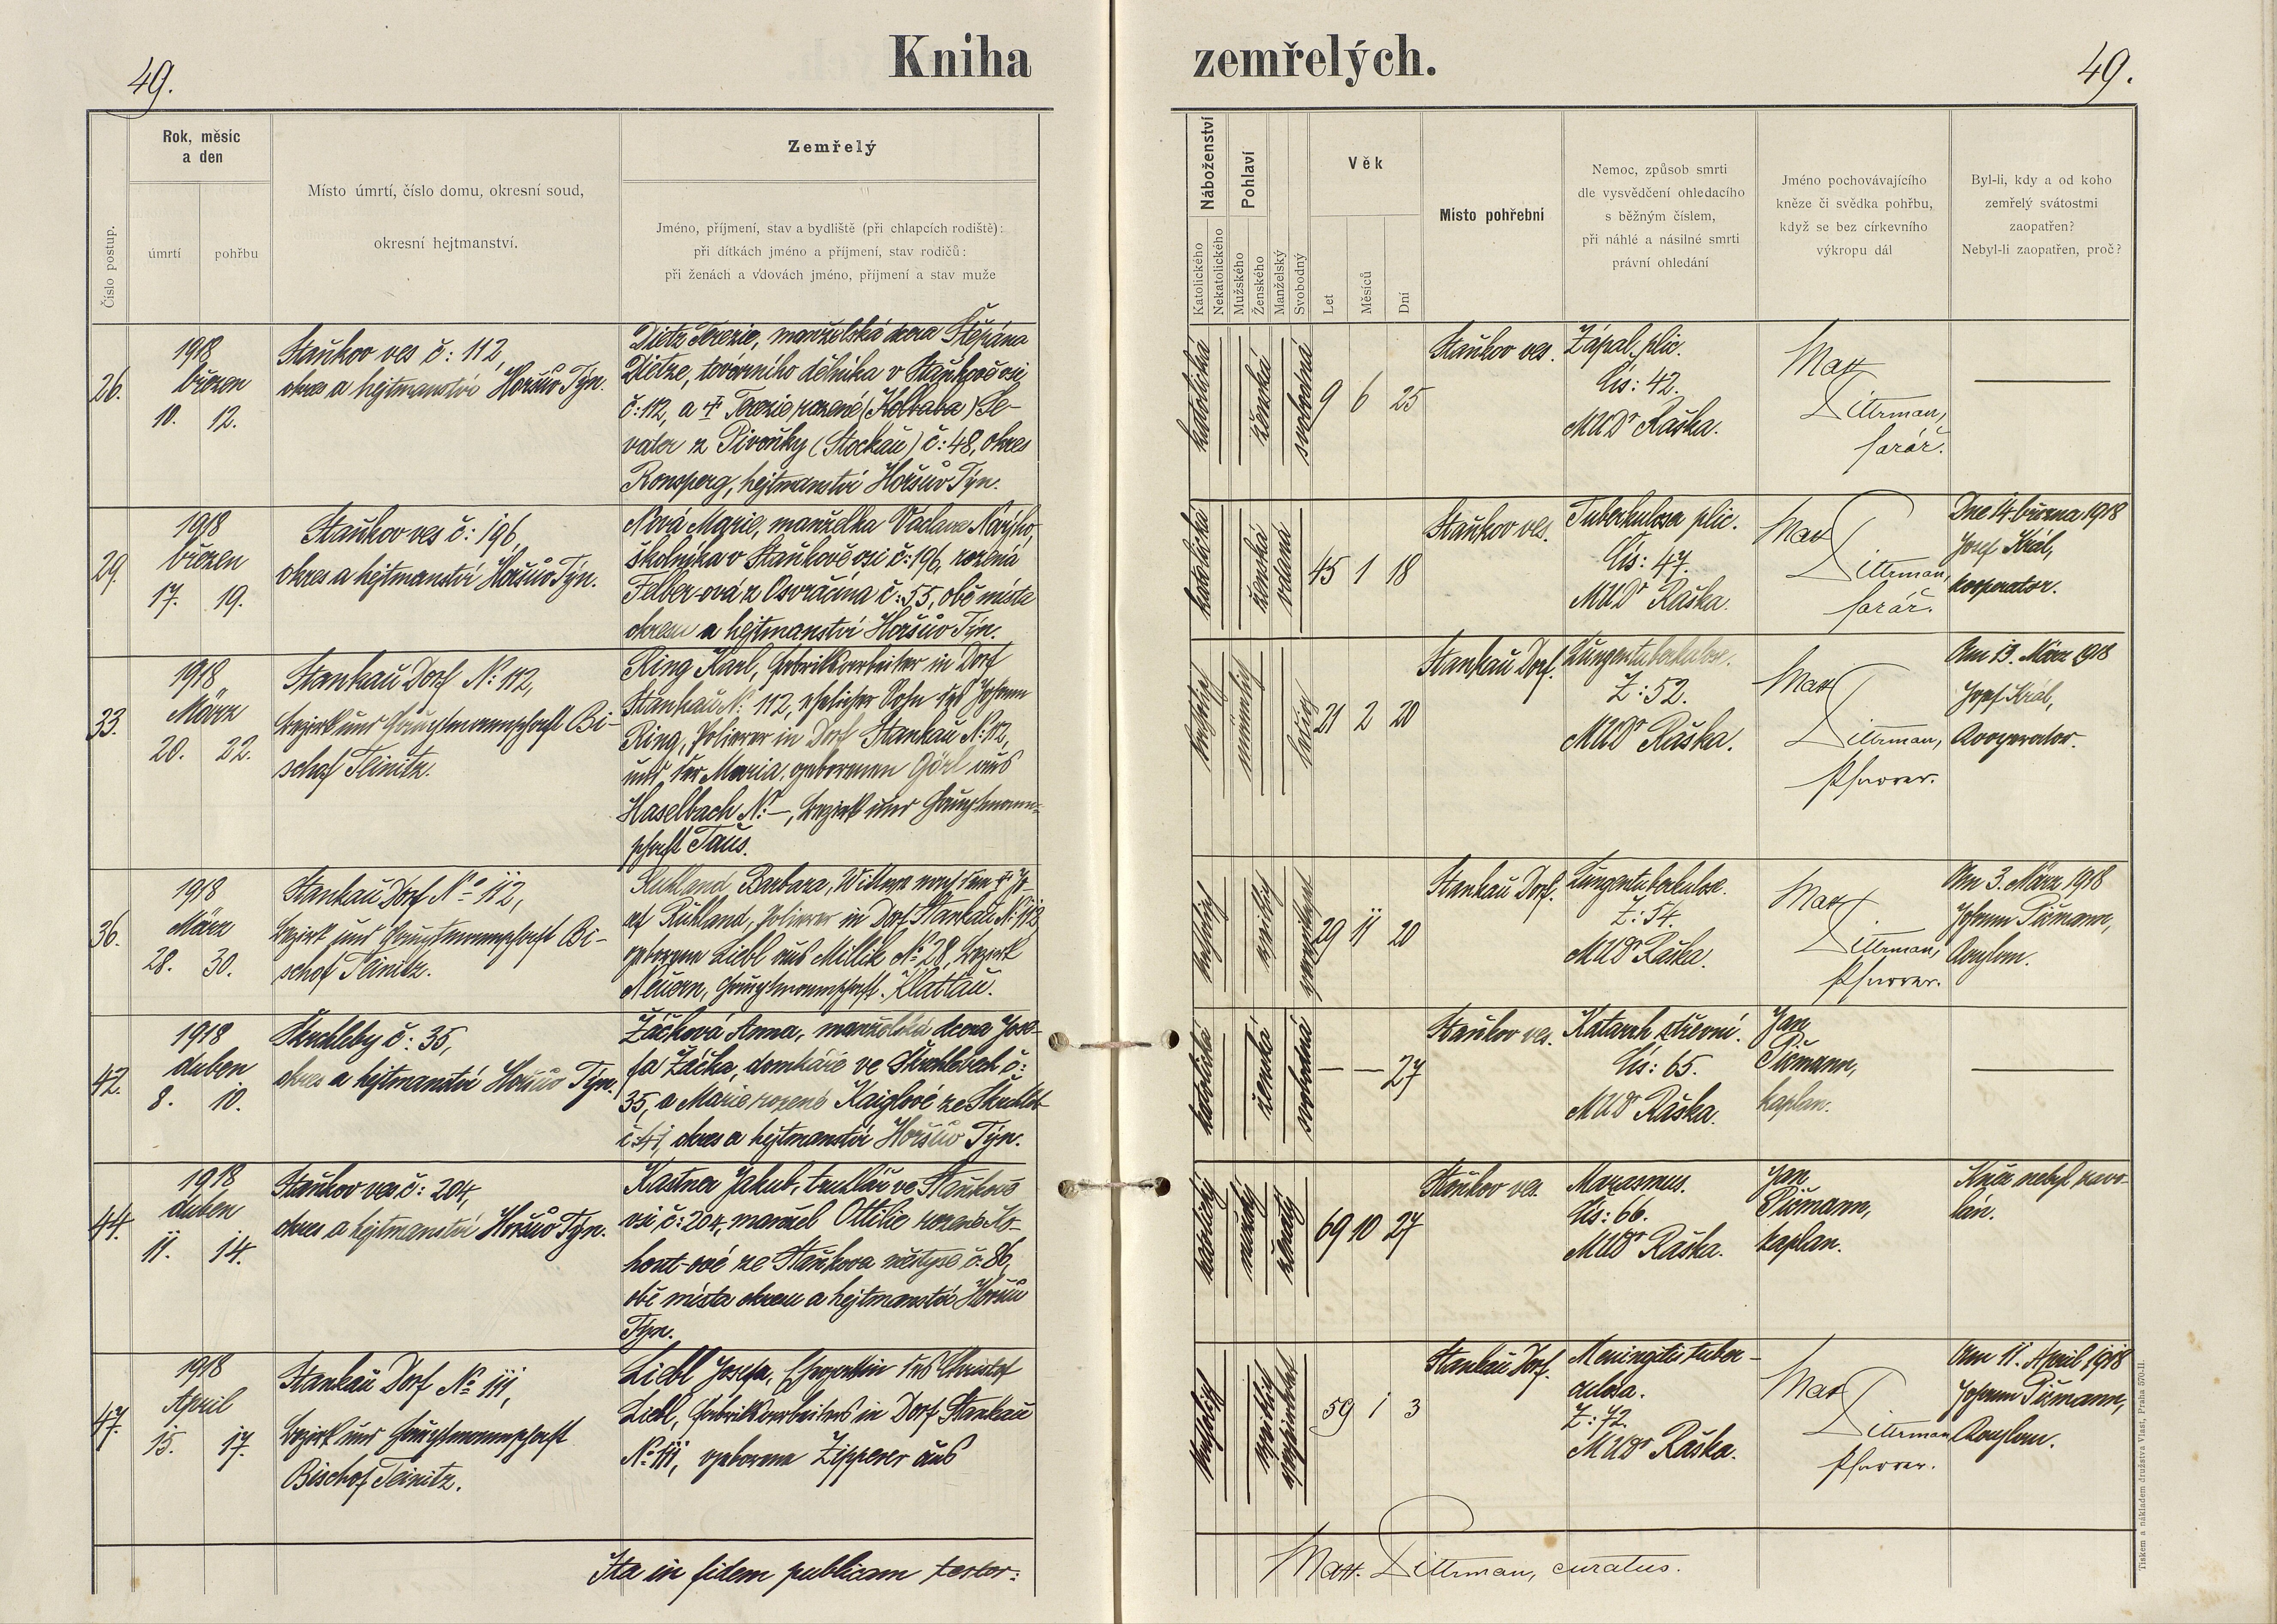 49.
Kniha
zemřelých.
49.
Číslo postup.
Rok, měsíc
a den
úmrtí
pohřbu
Místo úmrtí, číslo domu, okresní soud,
okresní hejtmanství.
Zemřelý
Jméno, příjmení, stav a bydliště (při chlapcích rodiště):
při dítkách jméno a příjmení, stav rodičů:
při ženách a vdovách jméno, příjmení a stav muže
Náboženství
Katolického
Nekatolického
Pohlaví
Mužského
Ženského
Manželský
Svobodný
Věk
Let
Měsíců
Dní
Místo pohřební
Nemoc, způsob smrti
dle vysvědčení ohledacího
s běžným číslem,
při náhlé a násilné smrti
právní ohledání
Jméno pochovávajícího
kněze či svědka pohřbu,
když se bez církevního
výkropu dál
Byl-li, kdy a od koho
zemřelý svátostmi
zaopatřen?
Nebyl-li zaopatřen, proč?
26.
1918
březen
10. 12.
Staňkov ves č: 112,
okres a hejtmanství Horšův Týn.
Dietz Terezie, manželská dcera Štěpána
Dietze, továrního dělníka v Staňkově vsi
č: 112, a † Terezie rozené (Kolbaba)
z Pivoňky (Stockau) č: 48, okres
Ronsperg, hejtmanství Horšův Týn.
katolická
ženská
svobodná
9 6 25
Staňkov ves.
Zápal plic.
Čís: 42.
MUDr Raška.
Mat
Dittrman,
farář.
29.
1918
březen
17. 19.
Staňkov ves č: 196,
okres a hejtmanství Horšův Týn.
Nová Marie, manželka Václava Nového,
školníka v Staňkově vsi č: 196, rozená
Felber-ová z Osvračína č: 55, obě místa
okresu a hejtmanství Horšův Týn.
katolická
ženská
vdaná
45 1 18
Staňkov ves.
Tuberkulosa plic.
Čís: 47.
MUDr Raška.
Mat
Dittrman,
farář.
Dne 14. března 1918
Josef Král,
kooperator.
33.
1918
März
20. 22.
Stankau Dorf No: 112,
Bezirk und Hauptmannschaft Bi-
schof Teinitz.
Ring Karl, Fabriksarbeiter in Dorf
Stankau No: 112, ehelicher Sohn des Johann
Ring, Polierer in Dorf Stankau No: 112,
und der Maria, geborenen Görl aus
Haselbach No: —, Bezirk und Hauptmann-
schaft Taus.
katholisch
männlich
ledig
21 2 20
Stankau Dorf.
Lungentuberkulose.
Z: 52.
MUDr Raška.
Mat
Dittrman,
Pfarrer.
Am 13. März 1918
Josef Král,
Kooperator.
36.
1918
März
28. 30.
Stankau Dorf No 112,
Bezirk und Hauptmannschaft Bi-
schof Teinitz.
Ruhland Barbara, Witwe nach dem † Jo-
sef Ruhland, Polierer in Dorf Stankau No: 112
geborene Liebl aus Millik No: 28, Bezirk
Neuern, Hauptmannschaft Klattau.
katholisch
weiblich
verwitwet
29 11 20
Stankau Dorf.
Lungentuberkulose.
Z: 54.
MUDr Raška.
Mat
Dittrman,
Pfarrer.
Am 3. März 1918
Johann Pišmann,
Kaplan.
42.
1918
duben
8. 10.
Štichleby č: 35,
okres a hejtmanství Horšův Týn.
Žáčková Anna, manželská dcera Jose-
fa Žáčka, domkáře ve č:
35, a Marie rozené Kaiglové ze
okres a hejtmanství Horšův Týn.
katolická
ženská
svobodná
— — 27
Staňkov ves.
Katarrh střevní.
Čís: 65.
MUDr Raška.
Jan
Pišmann,
kaplan.
44.
1918
duben
11. 14.
Staňkov ves č: 204,
okres a hejtmanství Horšův Týn.
Kastner Jakub, truhlář ve Staňkově
vsi č: 204, manžel Ottilie rozené Ko-
hout-ové ze Staňkova městyse č: 86,
obě místa okresu a hejtmanství Horšův
Týn.
katolický
mužský
ženatý
69 10 27
Staňkov ves.
Marasmus.
Čís: 66.
MUDr Raška.
Jan
Pišmann,
kaplan.
Kněz nebyl zavo-
lán.
47.
1918
April
15. 17.
Stankau Dorf No 111,
Bezirk und Hauptmannschaft
Bischof Teinitz.
Liebl Josefa, Ehegattin des Christof
Liebl, Fabriksarbeiters in Dorf Stankau
No 111, geborene Zipperer aus
katholisch
weiblich
verheiratet
59 1 3
Stankau Dorf.
Meningitis tuber-
culosa.
Z: 72
MUDr Raška.
Mat
Dittrman
Pfarrer.
Am 11. April 1918
Johann Pišmann,
Kaplan.
Ita in fidem publicam testor:
Matt. Dittrman, curatus.
Tiskem a nákladem družstva Vlast, Praha 570-II.